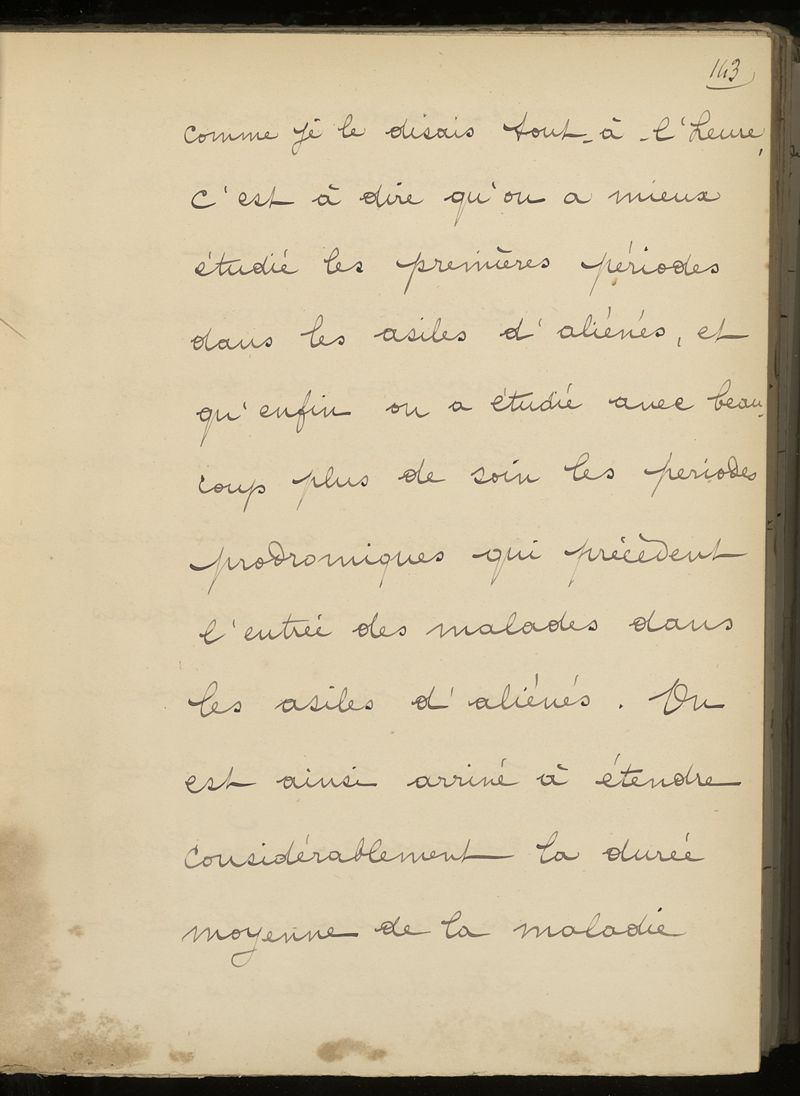 143
comme je le disais tout-à-l'heure,
c'est à dire qu'on a mieux
étudié les premières périodes
dans les asiles d'aliénés, et
qu'enfin on a étudié avec beau-
coup plus de soin les periodes
prodromiques qui précèdent
l'entrée des malades dans
les asiles d'aliénés. On
est ainsi arrivé à étendre
considérablement la durée
moyenne de la maladie